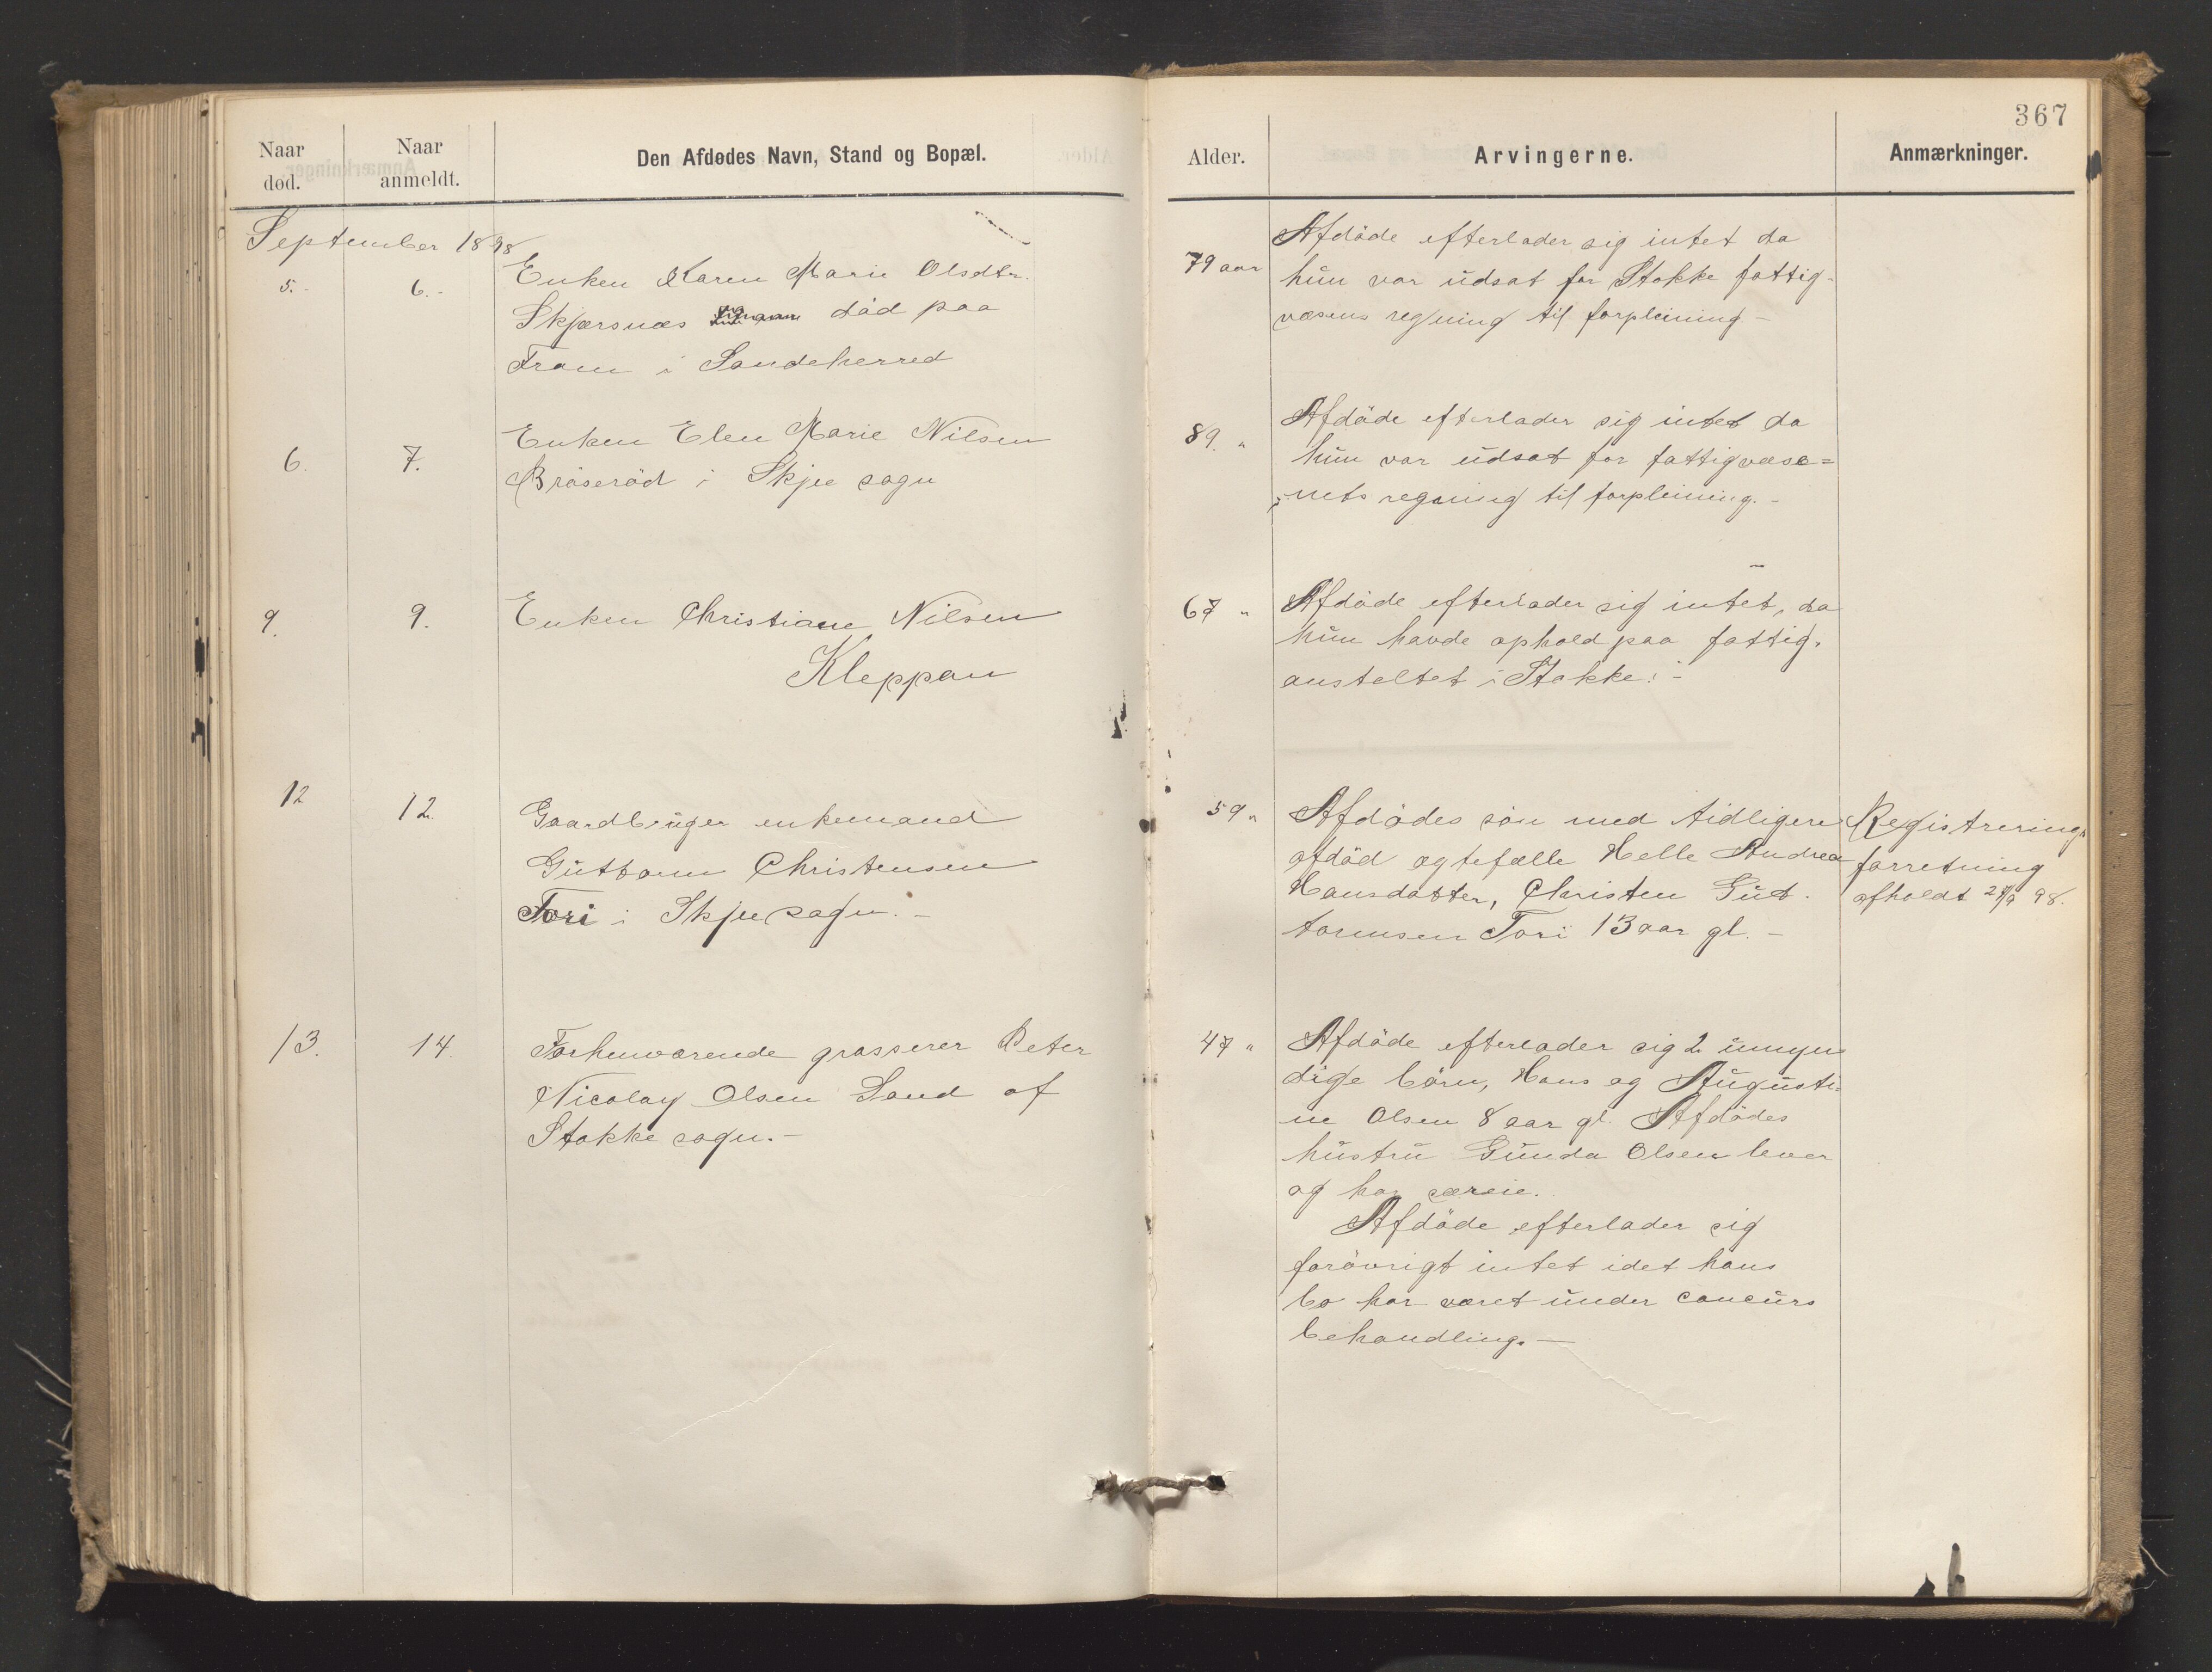 367
Naar død. Naar anmeldt. Den Afdødes Navn, Stand og Bopæl. Alder. Arvingerne. Anmærkninger.
September 1898
5.- 6.- Enken Karen Marie Olsdtr.
Skjærsnæs död paa
Fram i Sandeherred
79 aar Afdöde efterlader sig intet da
hun var udsat for Stokke fattig-
væsens regning til forpleining.-
6. 7. Enken Elen Marie Nilsen
Bräseröd i Skjee sogn
89. " Afdöde efterlader sig intet da
hun var udsat for fattigvæse=
nets regning til forpleining.-
9. 9. Enken Christiane Nilsen
Kleppan
67 " Afdöde efterlader sig intet, da
hun havde ophold paa fattig.
anstaltet i Stokke.-
12 12. Gaardbruger enkemand
Guttorm Christensen
Tori i Skjee sogn.-
59 " Afdödes sön med tidligere
afdöd ægtefælle Helle Andrea
Hansdatter, Christen Gut.
tormsen Tori 13 aar gl.-
Registrerings
forretning
afholdt 27/9 98.
13. 14. Forhenværende grosserer Peter
Nicolay Olsen Sand af
Stokke sogn.-
47 " Afdöde efterlader sig 2 umyn
dige börn, Hans og Augusti=
ne Olsen 8 aar gl. Afdödes
hustru Gunda Olsen lever
og har særeie.
Afdöde efterlader sig
forövrigt intet idet hans
bo har været under concurs
behandling.-